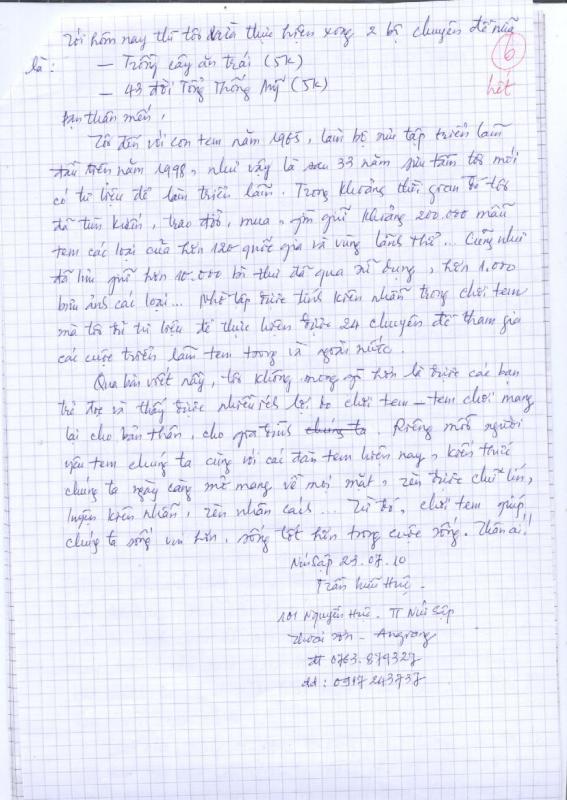 Tới hôm nay thì tôi vừa thực hiện xong 2 bộ chuyên đề nữa
là : — Trồng cây ăn trái (5k)
— 43 đời Tổng Thống Mỹ (5k)
6
hết
Bạn thân mến,
Tôi đến với con tem năm 1965, làm bộ sưu tập triển lãm
đầu tiên năm 1998, như vậy là sau 33 năm sưu tầm tôi mới
có tư liệu để làm triển lãm. Trong khoảng thời gian đó tôi
đã tìm kiếm, trao đổi, mua, gìn giữ khoảng 200.000 mẫu
tem các loại của hơn 120 quốc gia và vùng lãnh thổ... Cũng như
đã lưu giữ hơn 10.000 bì thư đã qua sử dụng, hơn 1.000
bưu ảnh các loại... Nhờ tập được tính kiên nhẫn trong chơi tem
mà tôi đủ tư liệu để thực hiện được 24 chuyên đề tham gia
các cuộc triển lãm tem trong và ngoài nước.
Qua bài viết này, tôi không mong gì hơn là được các bạn
trẻ đọc và thấy được nhiều ích lợi do chơi tem - tem chơi mang
lại cho bản thân, cho gia đình chúng ta. Riêng mỗi người
yêu tem chúng ta cùng với các đàn tem hiện nay, kiến thức
chúng ta ngày càng mở mang về mọi mặt, rèn được chữ tín,
luyện kiên nhẫn, rèn nhân cách... Từ đó, chơi tem giúp
chúng ta sống vui hơn, sống tốt hơn trong cuộc sống. Thân ái!
Núi Sập 23.07.10
Trần Hữu Huệ.
101 Nguyễn Huệ. TT Núi Sập
Thoại Sơn - Angiang
đt 0763.879327
dđ : 0917243737